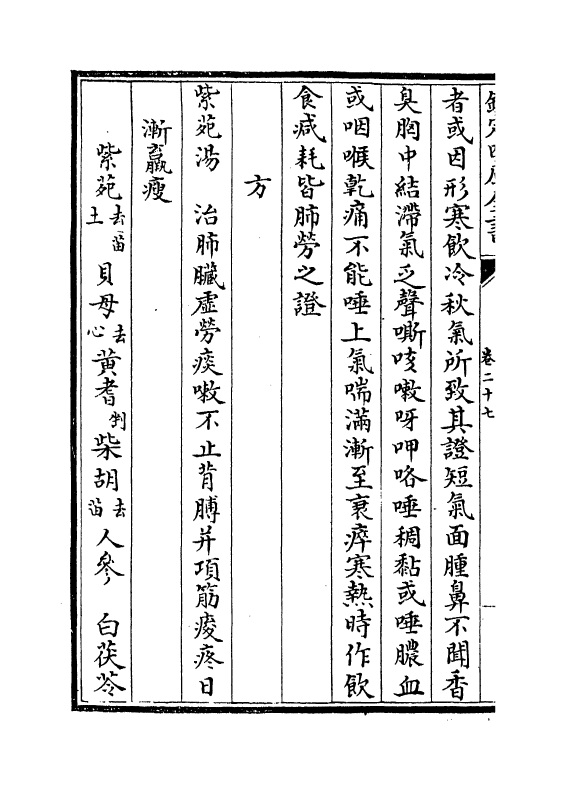 欽定四庫全書
卷二十七
者或因形寒飲冷秋氣所致其證短氣面腫鼻不聞香
臭胸中結滯氣乏聲嘶咳嗽呀呷咯唾稠黏或唾膿血
或咽喉乾痛不能唾上氣喘滿漸至衰瘁寒熱時作飲
食减耗皆肺勞之證
方
紫苑湯 治肺臟虚勞痰嗽不止背膊并項筋痠疼日
漸羸瘦
紫苑去苗土 貝母去心 黄耆剉 柴胡去苗 人參 白茯苓